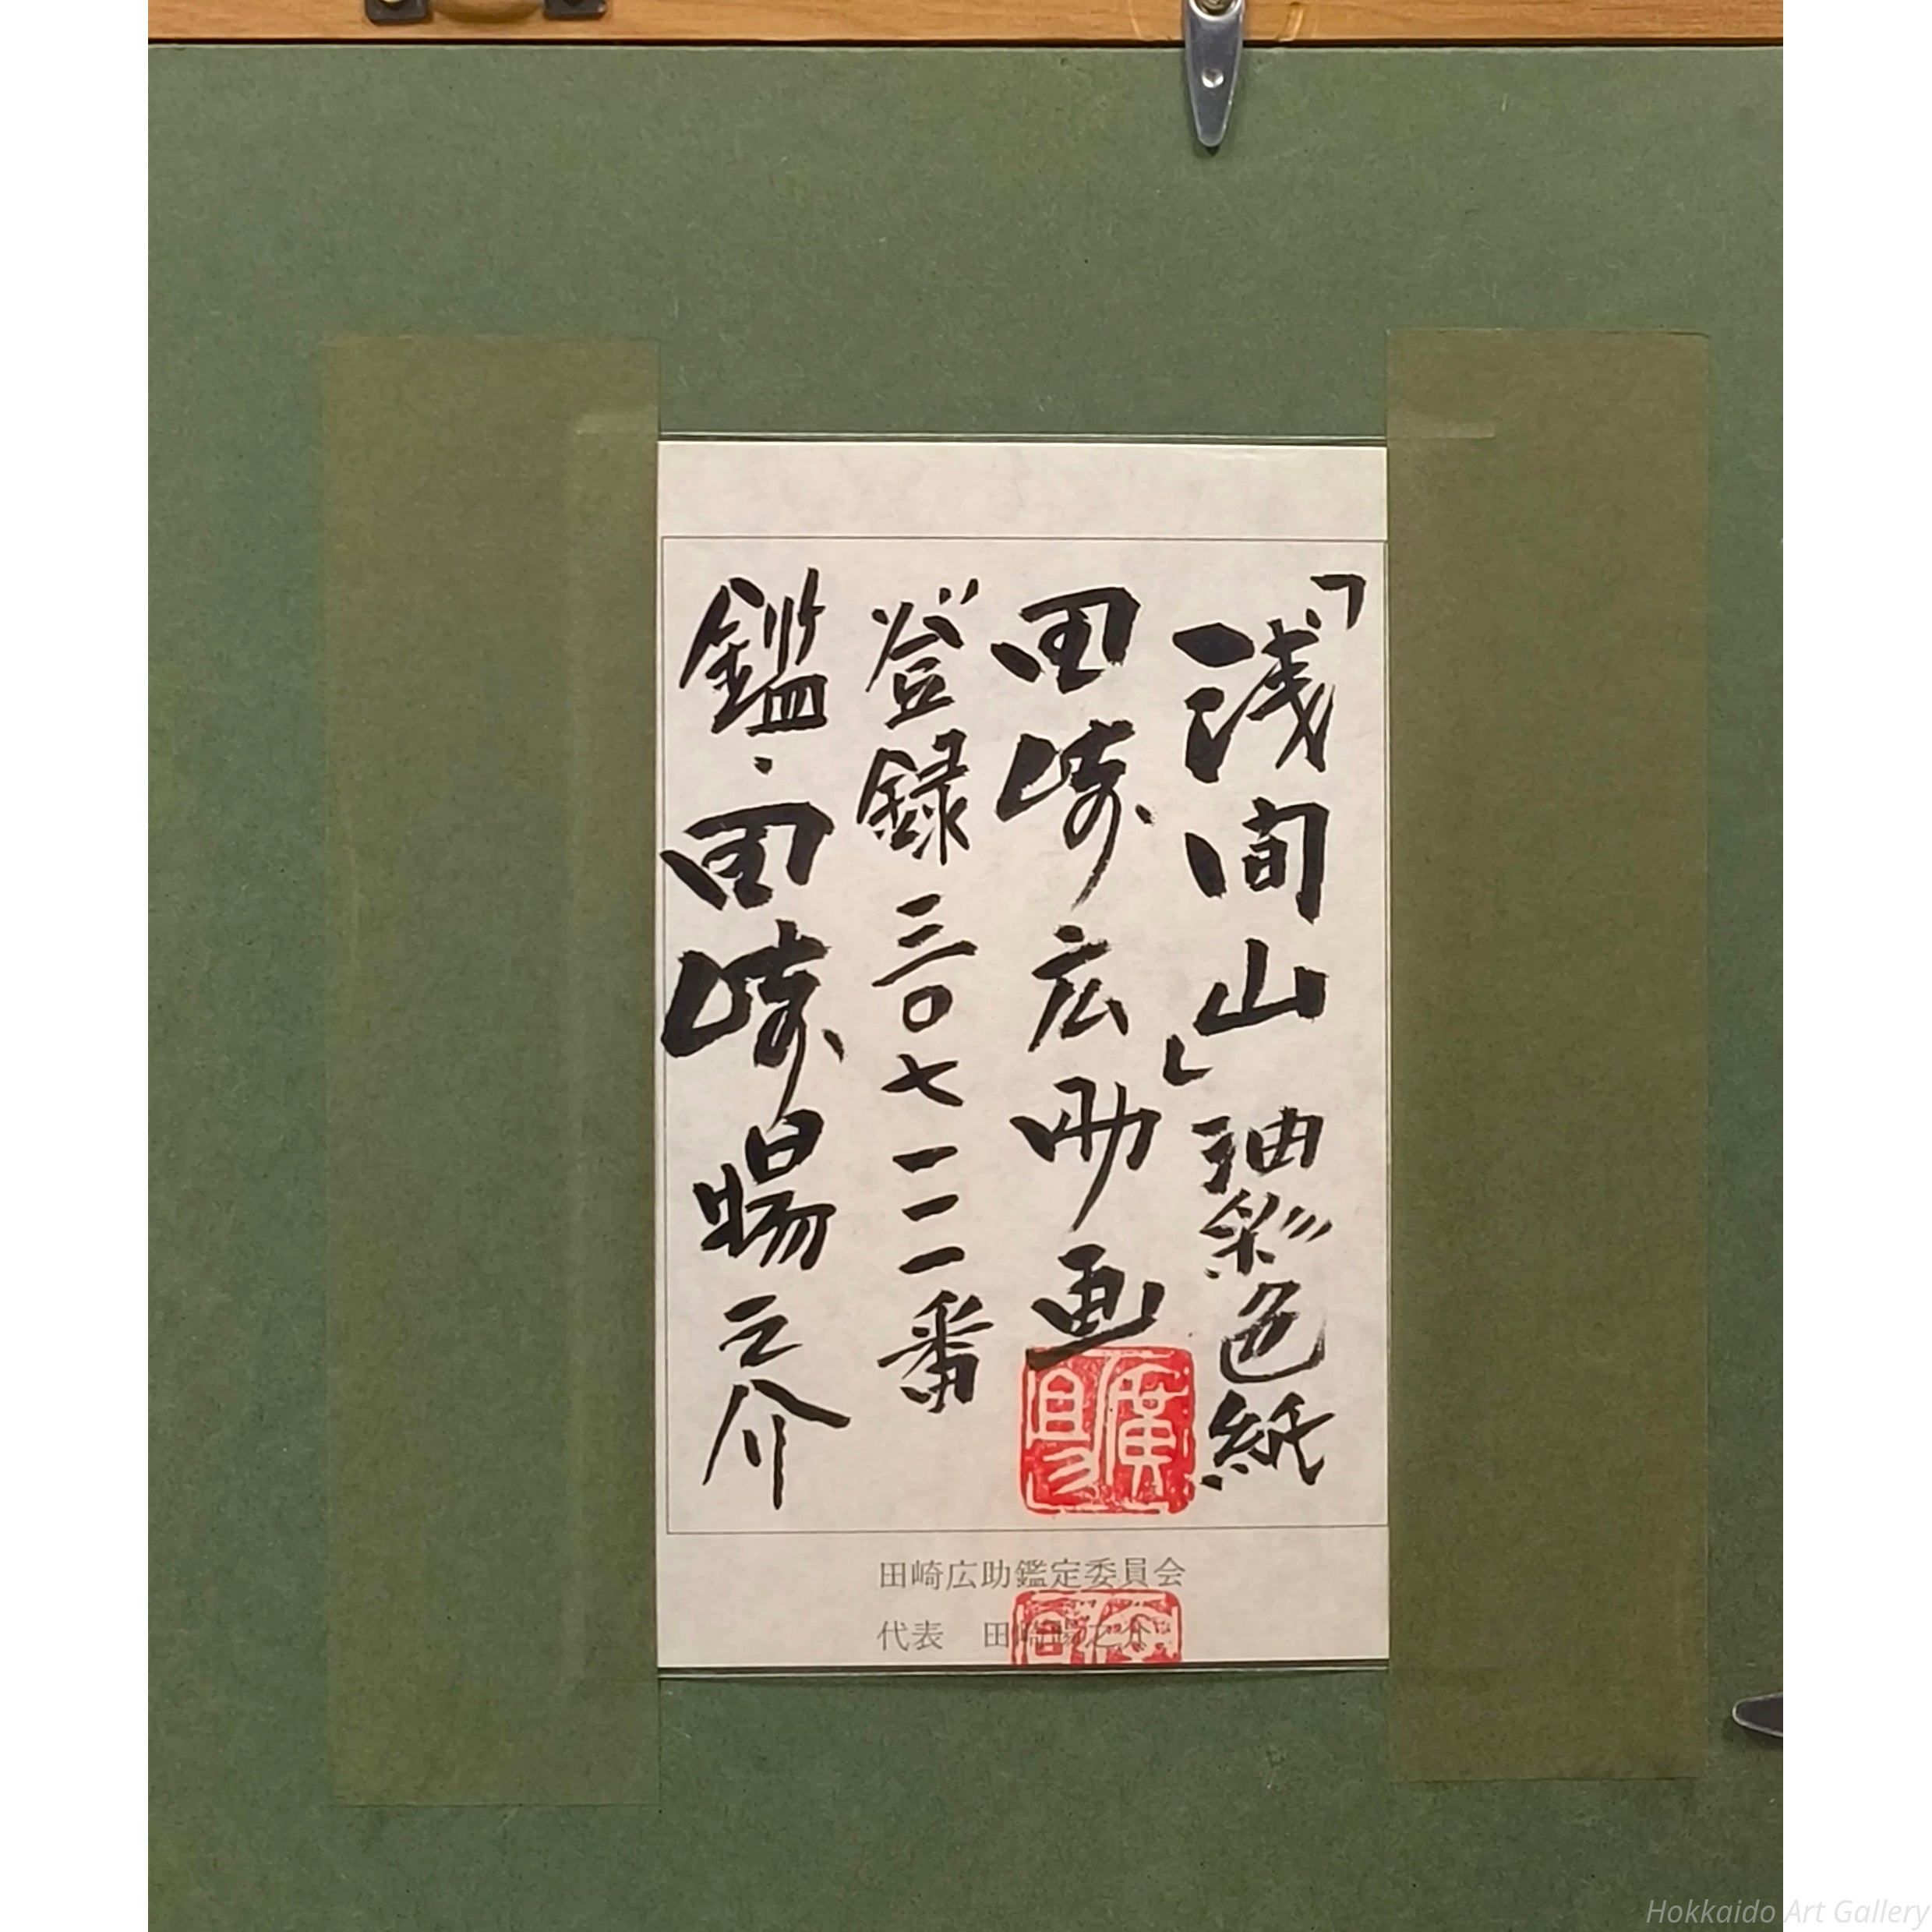 「浅間山」油彩色紙
田崎広助画
登録三〇七一一一番
鑑・田崎暘之介
廣助
田崎広助鑑定委員会
代表　田崎暘之介
Hokkaido Art Gallery